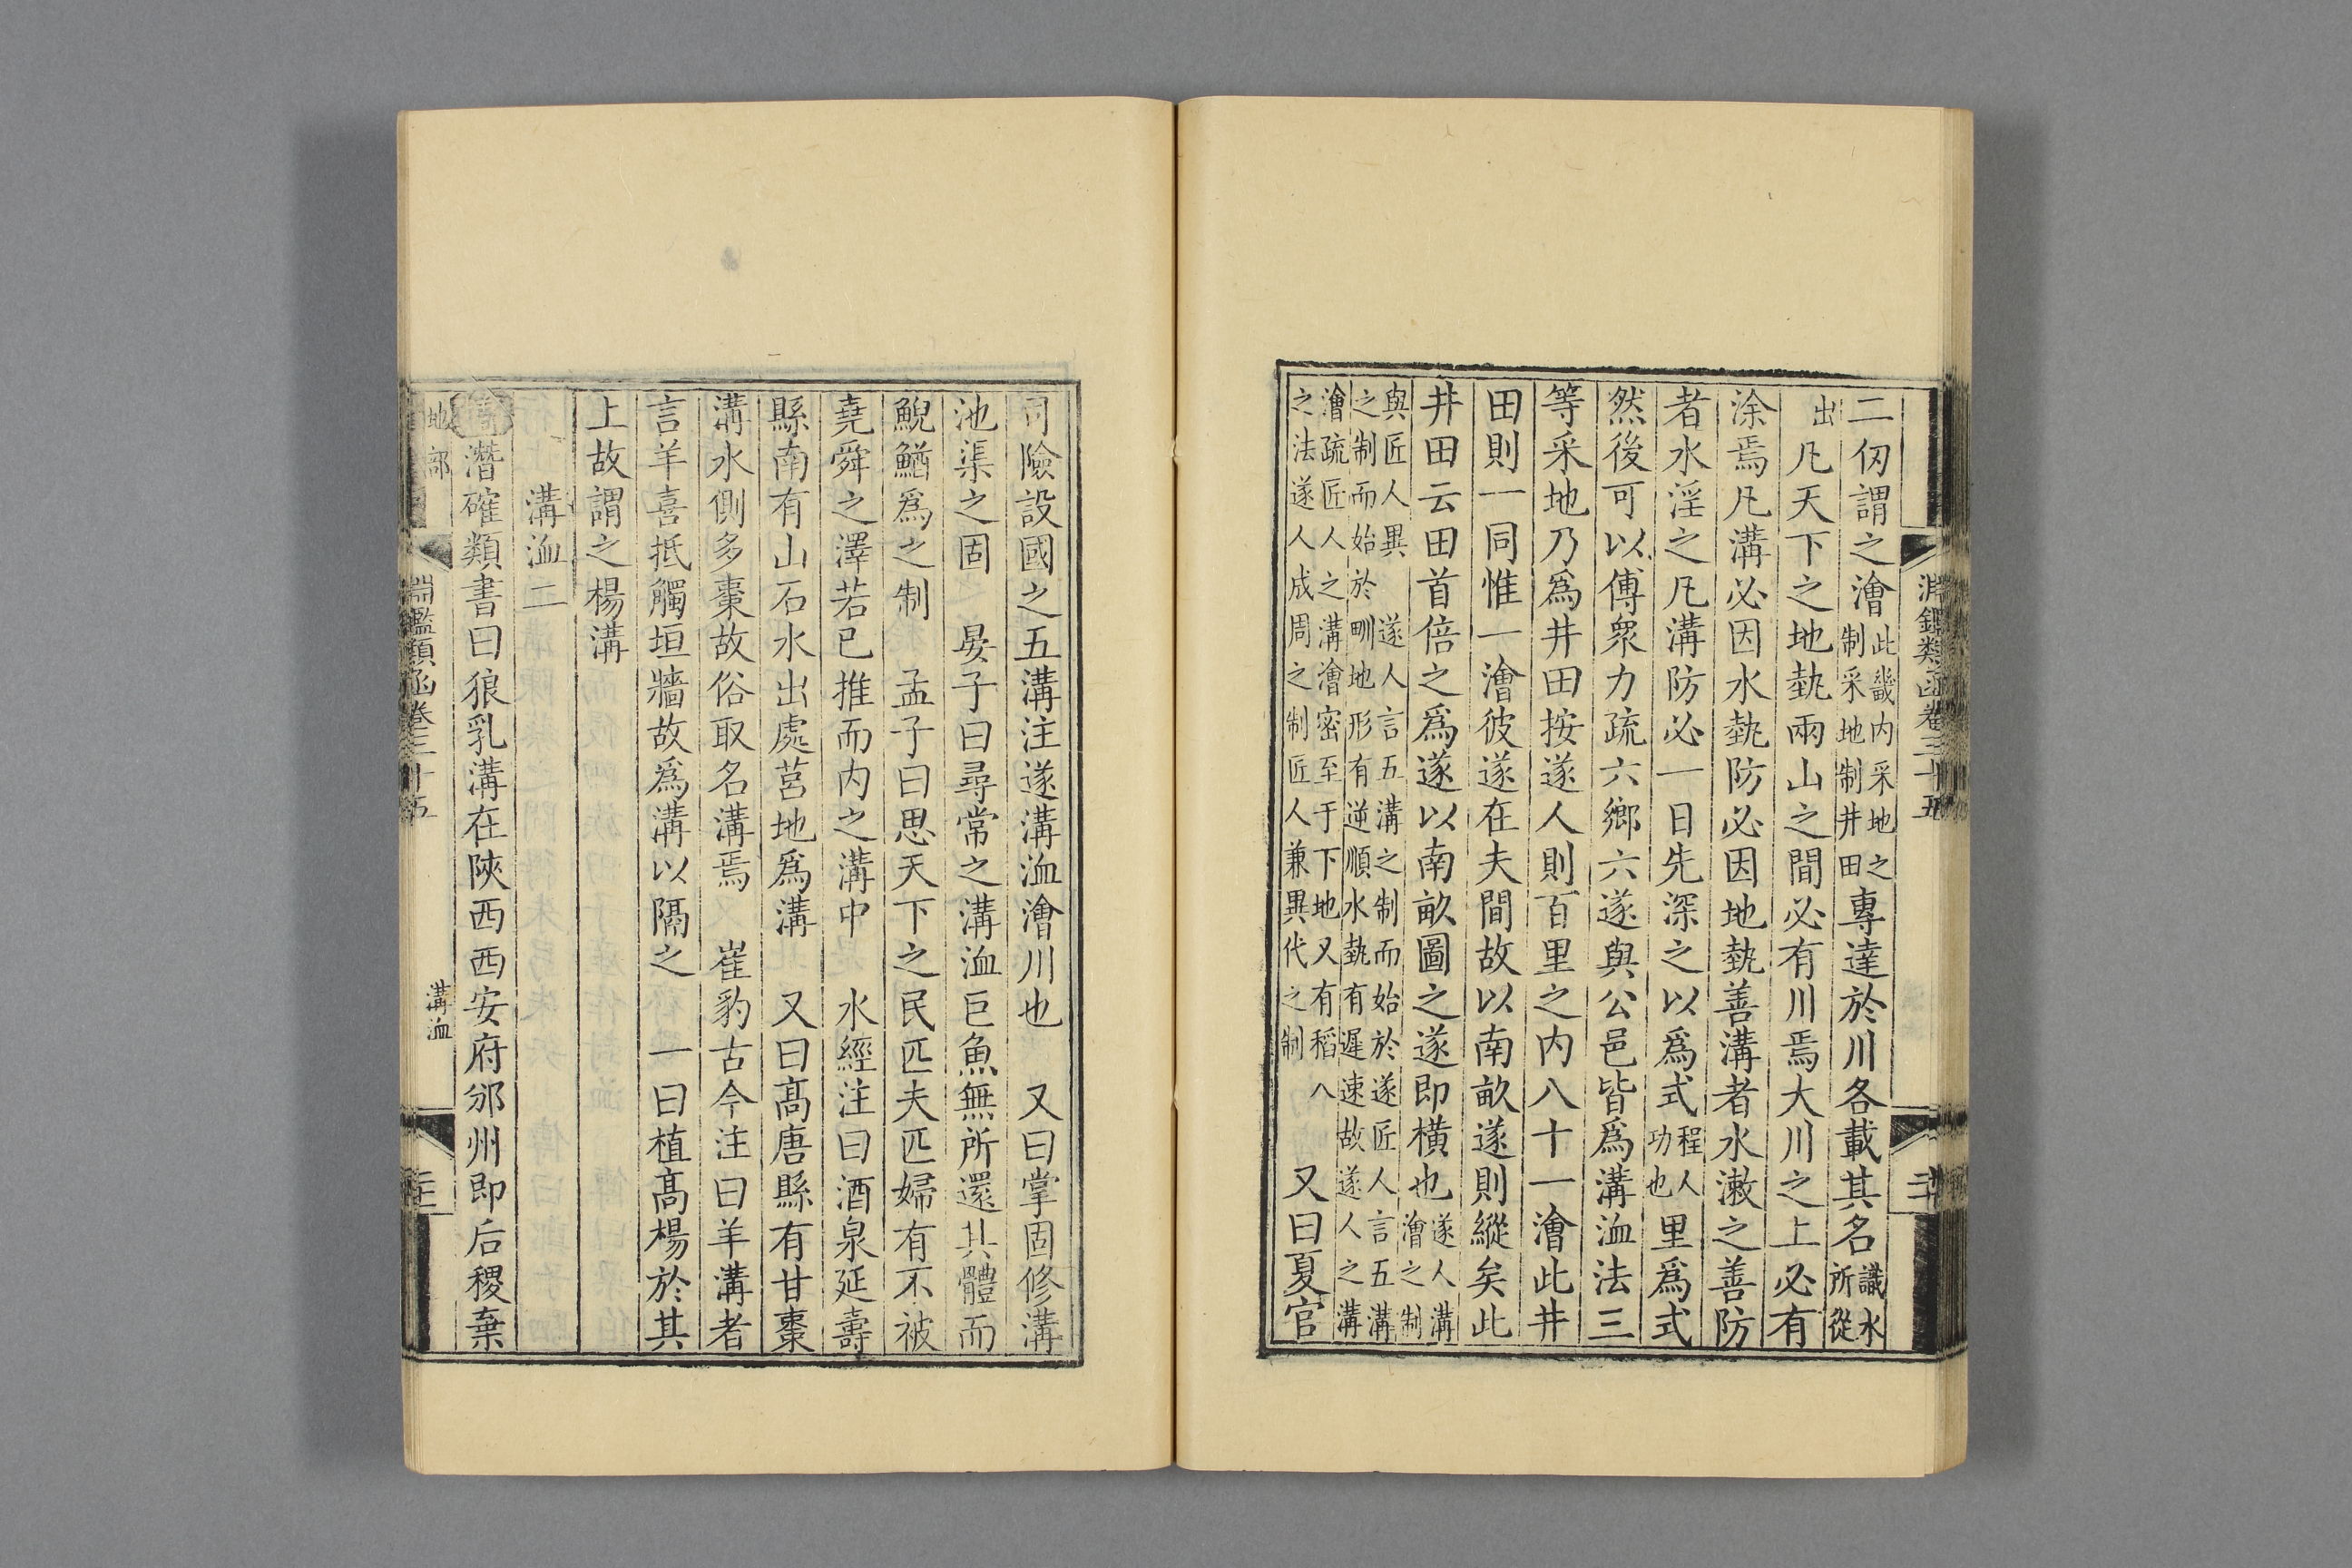 淵鑑類函卷三十五
二仞謂之澮此畿内采地之制采地制井田專達於川各載其名識水所從
出凡天下之地埶兩山之間必有川焉大川之上必有
涂焉凡溝必因水埶防必因地埶善溝者水漱之善防
者水淫之凡溝防必一日先深之以爲式程人功也里爲式
然後可以傅衆力疏六鄉六遂與公邑皆爲溝洫法三
等采地乃爲井田按遂人則百里之内八十一澮此井
田則一同惟一澮彼遂在夫間故以南畝遂則縱矣此
井田云田首倍之爲遂以南畝圖之遂即橫也遂人溝澮之制
與匠人異 遂人言五溝之制而始於遂匠人言五溝之制而始於甽地形有逆順水埶有遲速故遂人之溝
澮疏匠人之溝澮密至于下地又有稻人之法遂人成周之制匠人兼異代之制 又曰夏官
司險設國之五溝注遂溝洫澮川也 又曰掌固修溝
池渠之固 晏子曰尋常之溝洫巨魚無所還其體而
鯢鰌爲之制 孟子曰思天下之民匹夫匹婦有不被
堯舜之澤若已推而内之溝中 水經注曰酒泉延壽
縣南有山石水出處莒地爲溝 又曰髙唐縣有甘棗
溝水側多棗故俗取名溝焉 崔豹古今注曰羊溝者
言羊喜抵觸垣牆故爲溝以隔之 一曰植髙楊於其
上故謂之楊溝
溝洫二
潛確類書曰狼乳溝在陝西西安府邠州即后稷棄
地部
淵鑑類函卷三十五
溝洫